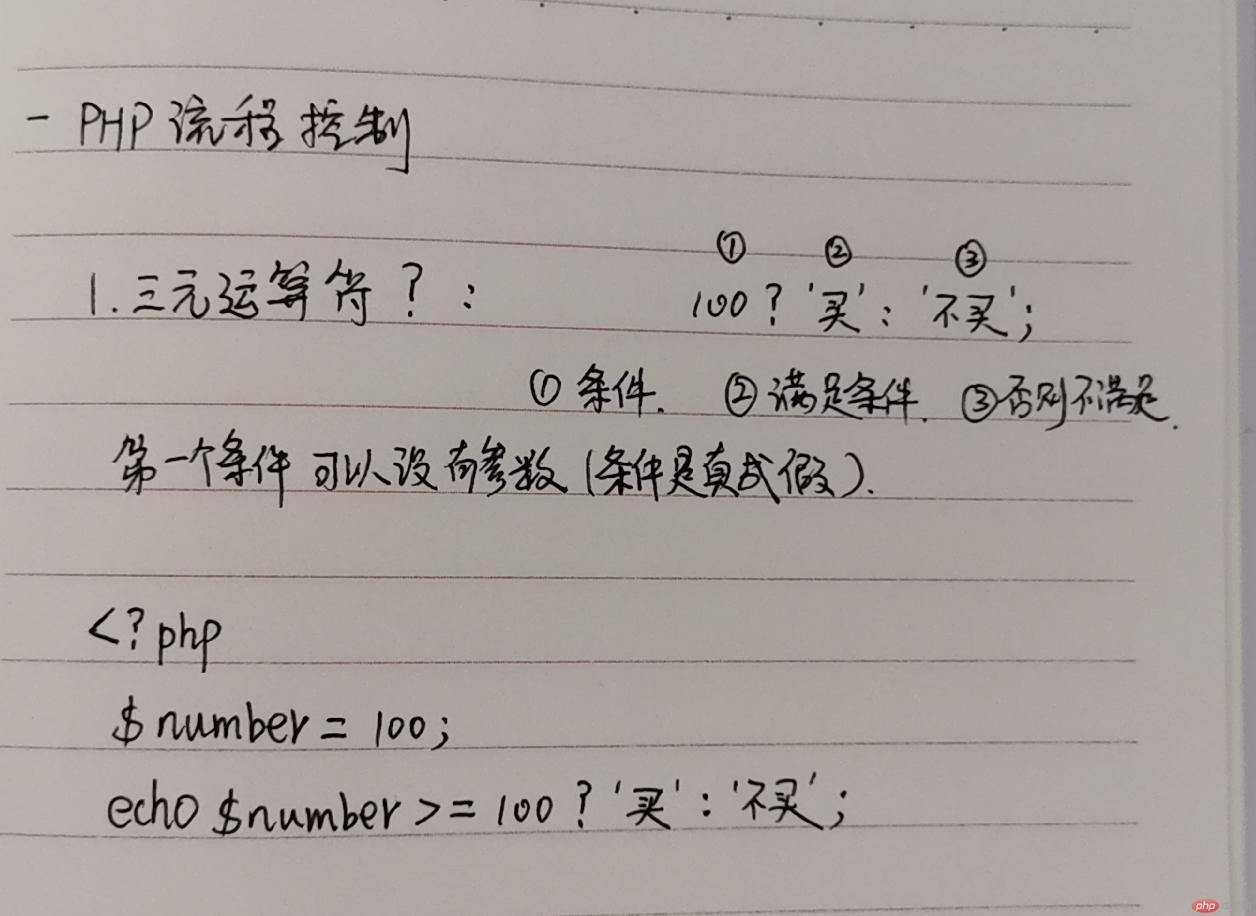 - PHP 流程控制
① ② ③
1.三元运算符? : 100 ? '买' : '不买';
① 条件. ② 满足条件. ③ 否则不满足.
第一个条件 可以没有参数 (条件是真或假).
<?php
$number = 100;
echo $number >= 100 ? '买' : '不买';
php